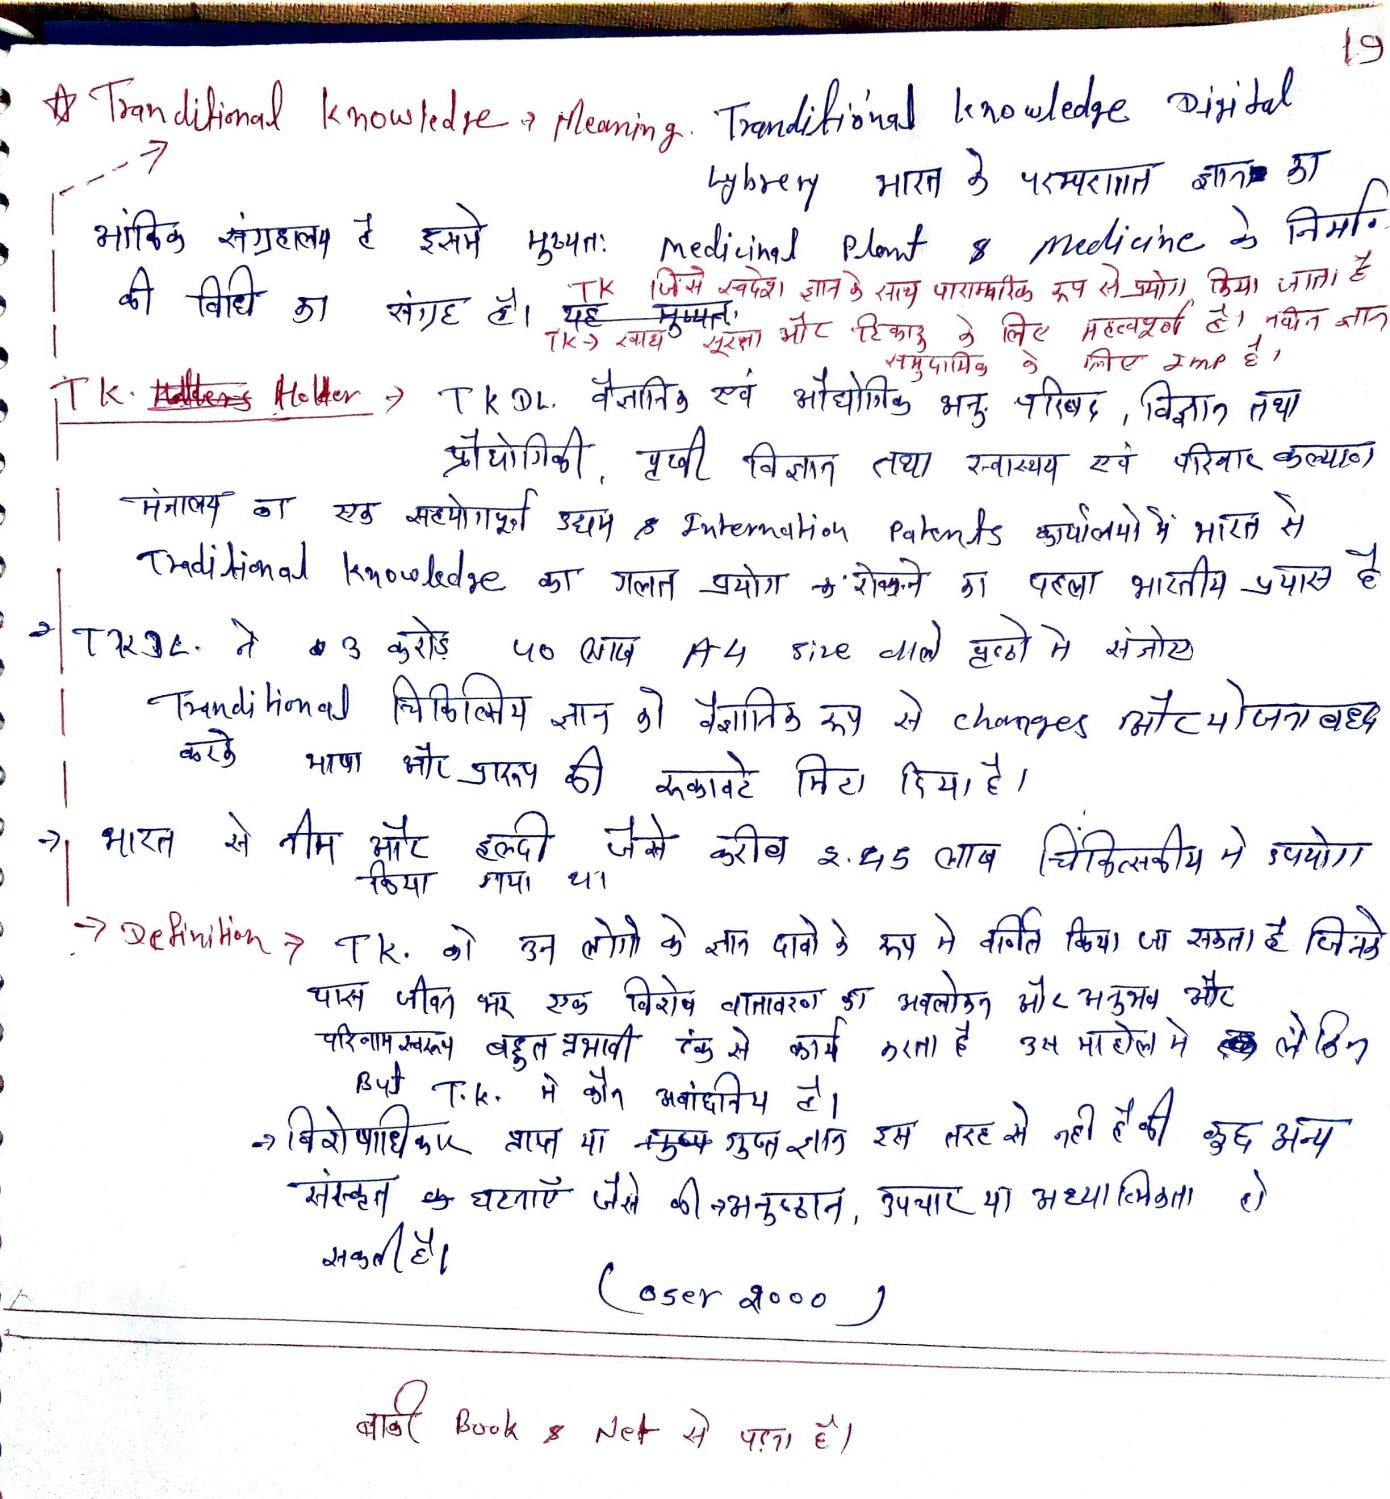 19
☆ Tranditional knowledge → Meaning. Tranditional knowledge Digital
Lybrery भारत के परम्परागत ज्ञान का
आंकिक संग्रहालय है इसमे मुख्यतः Medicinal Plant & Medicine के निर्माण
की विधि का संग्रह है। यह मुख्यतः
TK जिसे स्वदेशी ज्ञान के साथ पारम्परिक रूप से प्रयोग किया जाता है
TK → खाद्य सुरक्षा और टिकाऊ के लिए महत्वपूर्ण है। नवीन ज्ञान
समुदायिक के लिए Imp है।
TK. Holder → TKDL. वैज्ञानिक एवं औद्योगिक अनु. परिषद, विज्ञान तथा
प्रौद्योगिकी, पृथ्वी विज्ञान तथा स्वास्थय एवं परिवार कल्याण
मंत्रालय का एक सहयोगपूर्ण उद्यम & Internation Patents कार्यालयो में भारत से
Traditional knowledge का गलत प्रयोग को रोकने का पहला भारतीय प्रयास है
→ TKDL. ने 3 करोड़ 40 लाख A4 size वाले पृष्ठो मे संजोए
Tranditional चिकित्सिय ज्ञान को वैज्ञानिक रूप से changes और योजनाबद्ध
करके भाषा और प्रारूप की रूकावटे मिटा दिया है।
→ भारत से नीम और हल्दी जैसे करीब 2.45 लाख चिकित्सकीय मे उपयोग
किया गया था
→ Definition → TK. को उन लोगो के ज्ञान दावो के रूप मे वर्णित किया जा सकता है जिनके
पास जीवन भर एक विशेष वातावरण का अवलोकन और अनुभव और
परिणामस्वरूप बहुत प्रभावी ढंक से कार्य करता है उस माहोल मे लेकिन
But T.K. मे कौन अवांछनिय है।
→ विशेषाधिकार प्राप्त या गुप्त ज्ञान इस तरह से नही है की कुछ अन्य
संस्कृत के घटनाएँ जैसे की → अनुष्ठान, उपचार या अध्यात्मिकता हो
सकती है।
(oser 2000)
बाकी Book & Net से पढ़ना है।